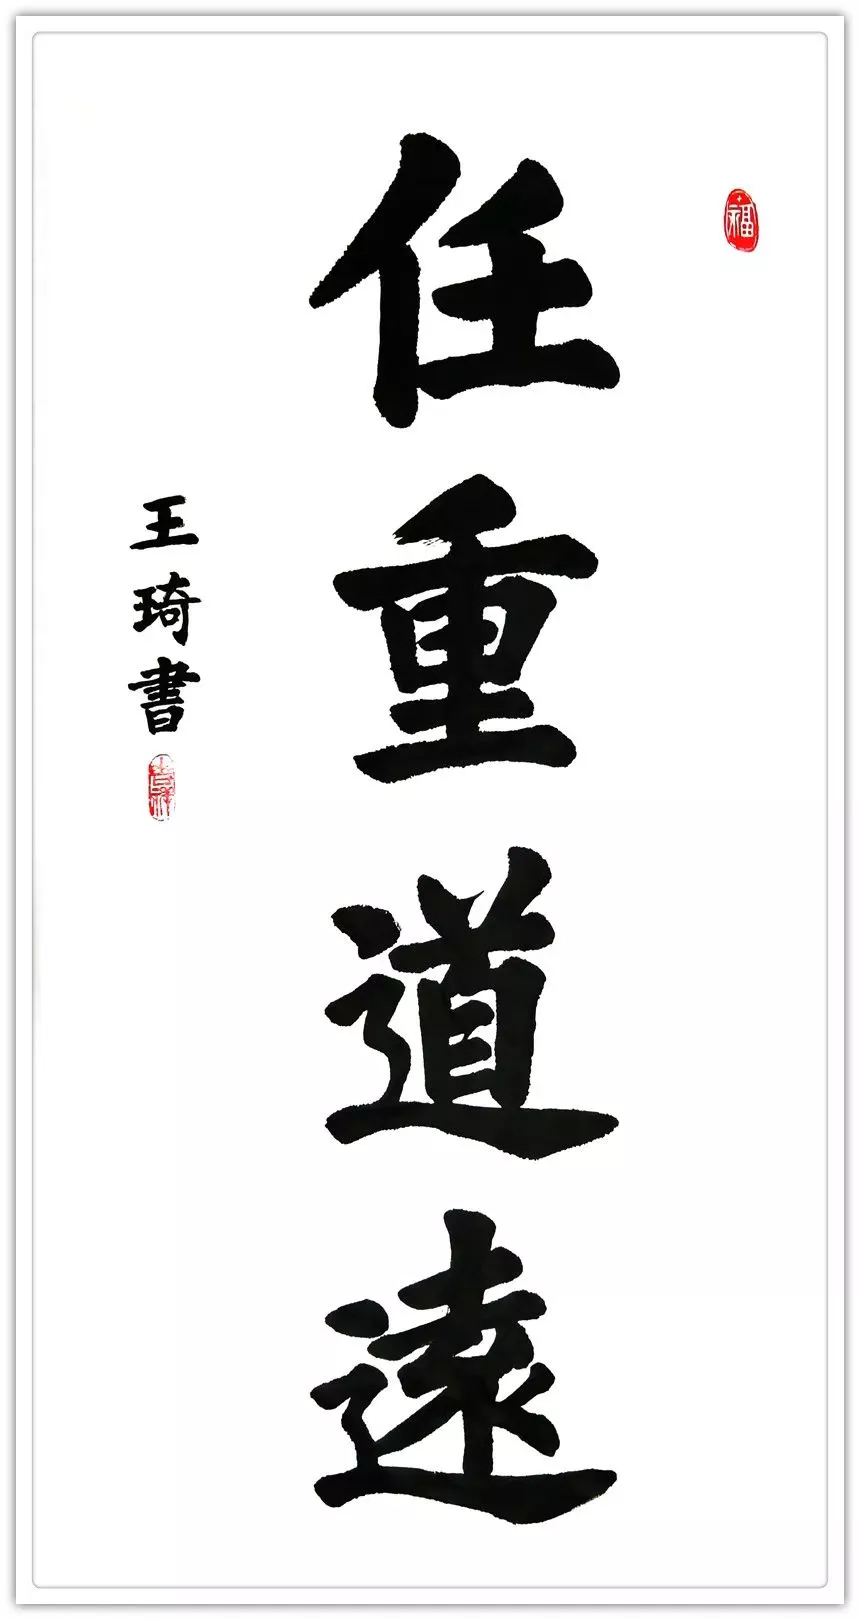 福
任重道遠
王琦書